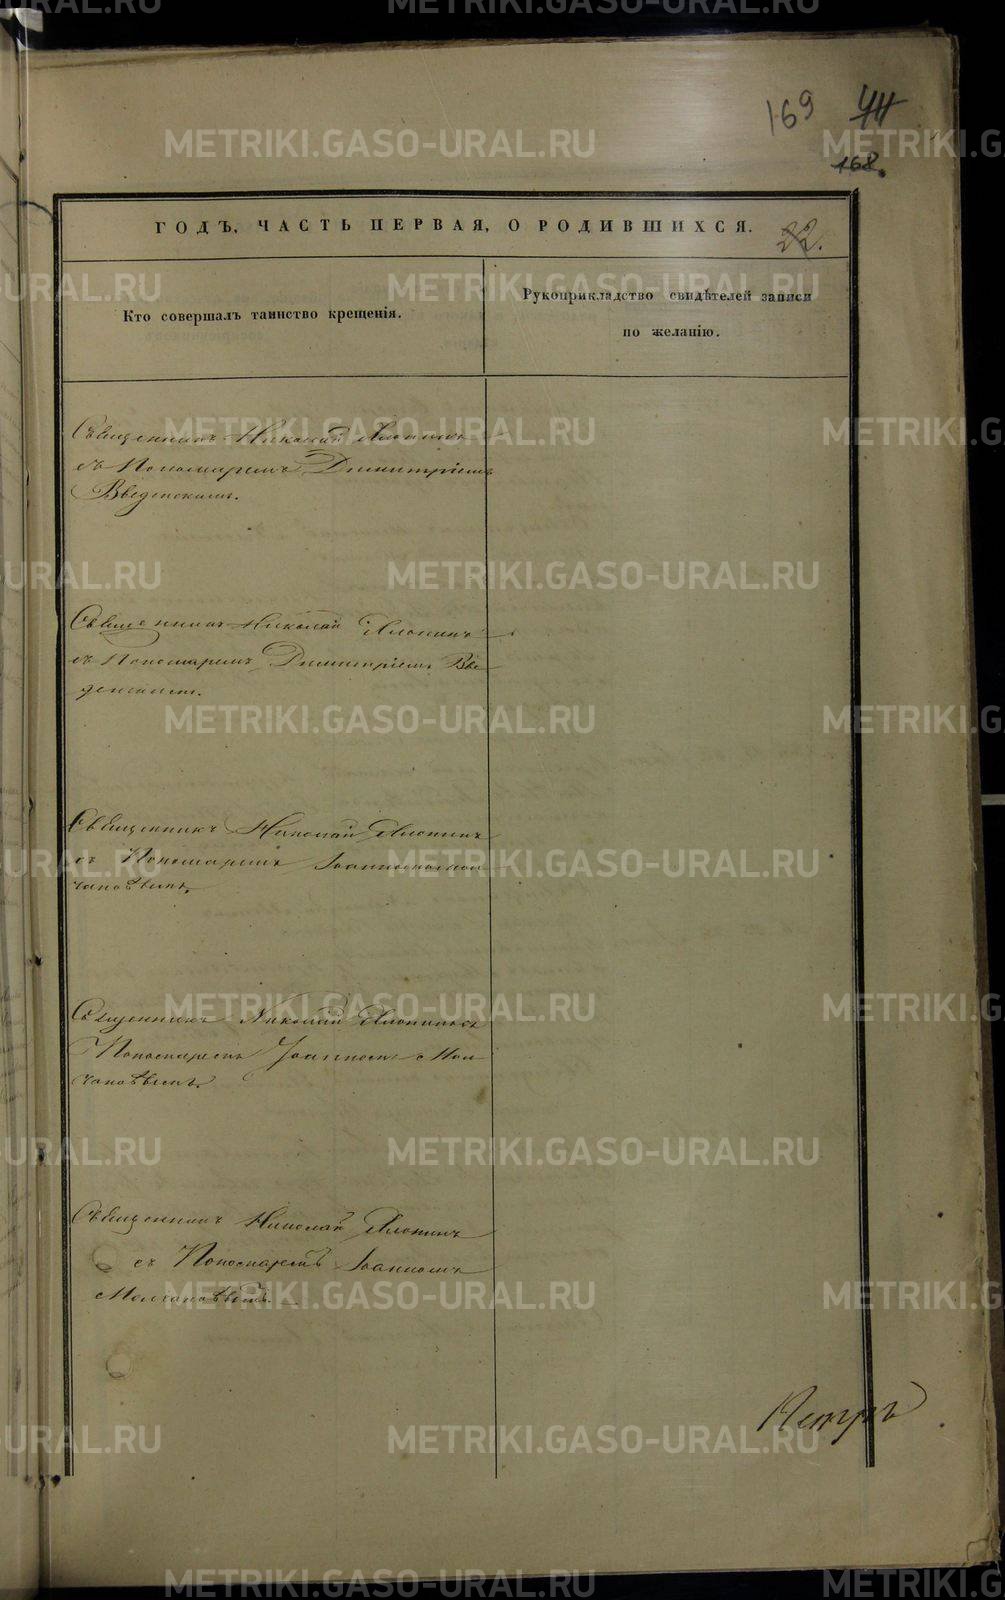 169 44
168.
ГОДЪ, ЧАСТЬ ПЕРВАЯ, О РОДИВШИХСЯ. 22.
Кто совершалъ таинство крещенія.
Рукоприкладство свидѣтелей записи
по желанію.
Священникъ Николай
съ Пономаремъ Димитріемъ
Введенскимъ.
Священникъ Николай
съ Пономаремъ Димитріемъ Вве
денскимъ.
Священникъ Николай
съ Пономаремъ Іоанномъ Мол
чановымъ.
Священникъ Николай
Пономаремъ Іоанномъ Мол
чановымъ.
Священникъ Николай
съ Пономаремъ Іоанномъ
Молчановымъ.
Петръ
METRIKI.GASO-URAL.RU